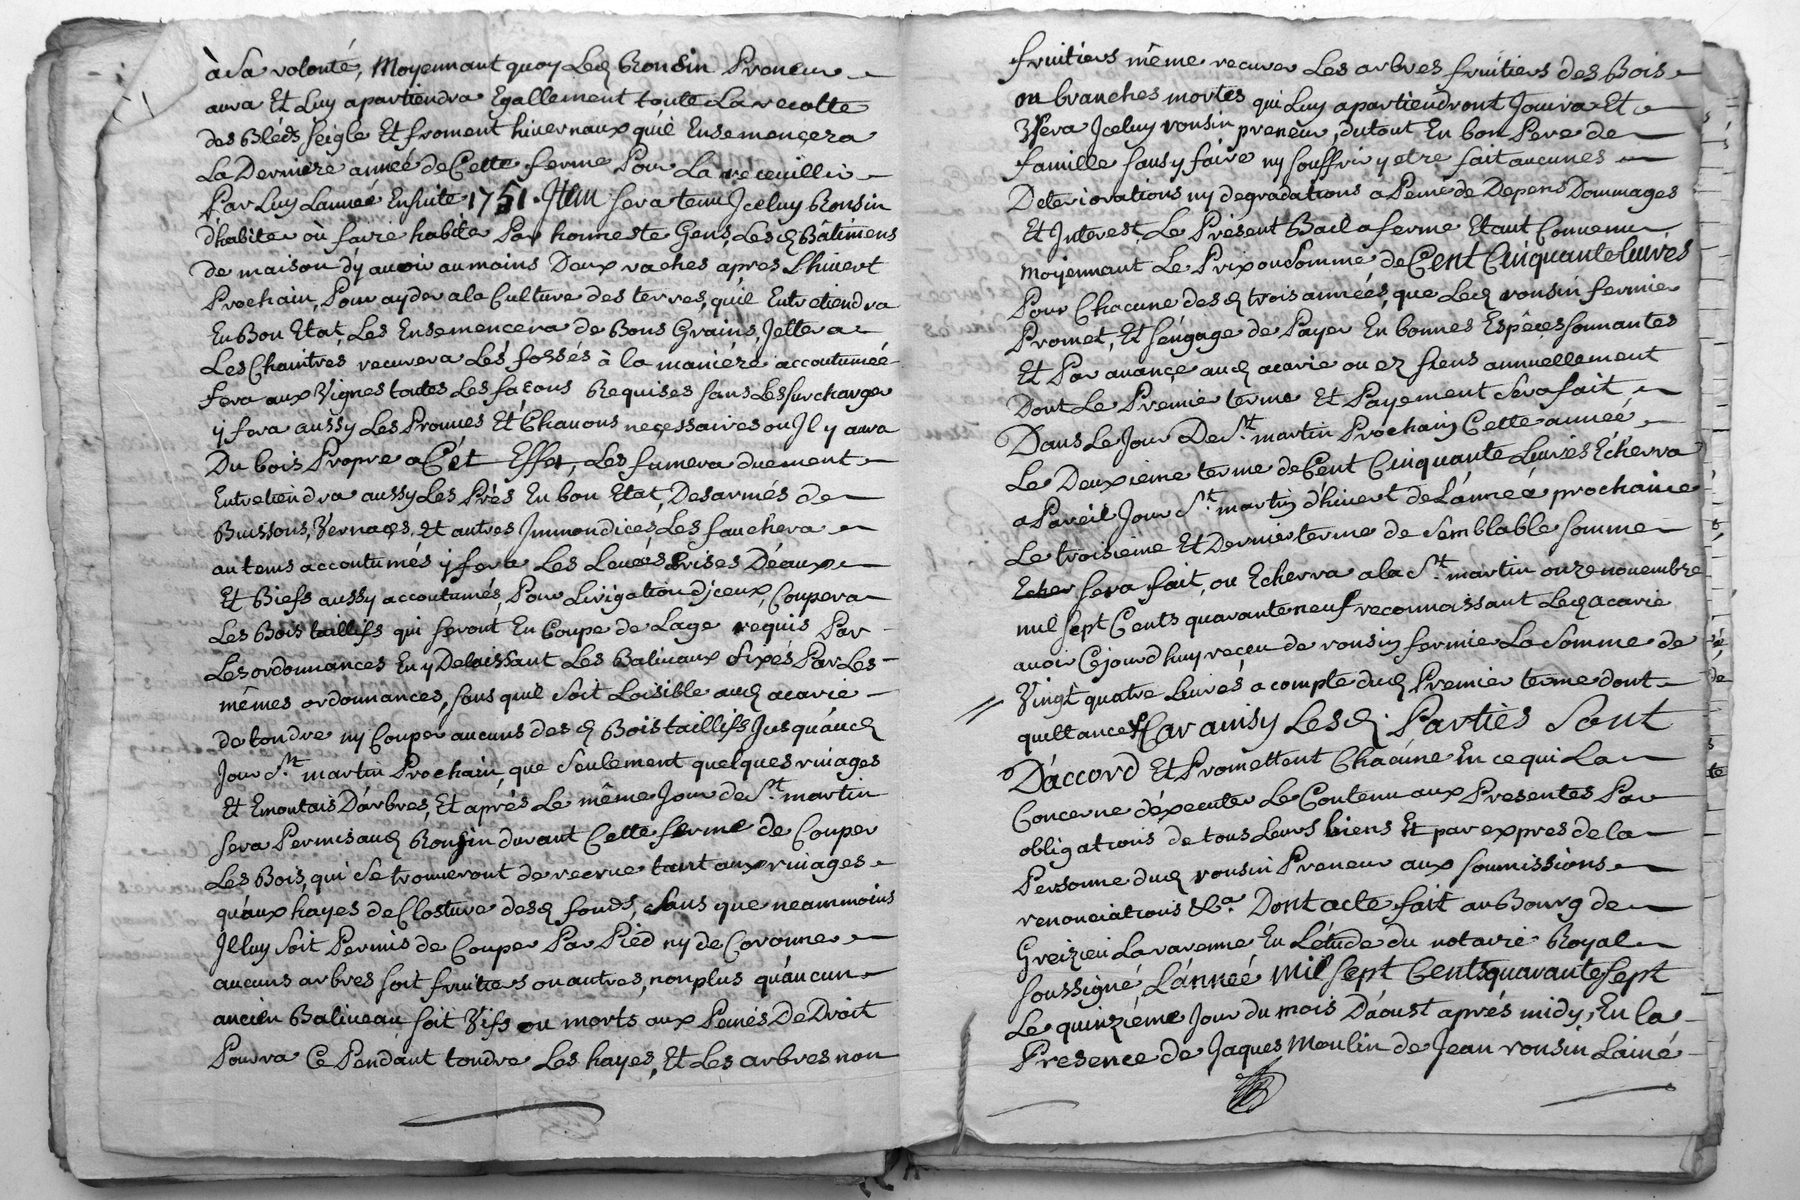 à Sa volonté, Moyennant quoy Led Ronsin Preneur
aura Et Luy apartiendra Egallement toute La recolte
des Bléds seigle Et froment hivernaux qu'il Ensemençera
La Derniere année de Cette ferme Pour La receuillir
Par Luy L'année Ensuite 1751. Item sera tenu Jceluy Ronsin
d'habiter où faire habiter Par honneste Gens, Lesd Batimens
de maison d'y avoir au moins Deux vaches, apres L'hivert
Prochain, Pour ayder a la Culture des terres, qu'il Entretiendra
En Bon Etat, Les Ensemencera de Bons Grains, Jettera
Les Chaintres recurera Les fossés à la maniére accoutumée
fera aux Vignes toutes Les façons Requises sans Les surcharger
y fera aussy Les Prouües Et Chavons neçessaires ou Jl y aura
Du bois Propre a Cét Effet, Les fumera duement
Entretiendra aussy Les Prés En bon Etat, Desarmés de
Buissons, Vernaçes, et autres Jmmondices, Les fauchera
au tems accoutumés y fera Les Levées Prises D'éaux
Et Biefs aussy accoutumés, Pour L'irigation d'jceux, Coupera
Les Bois taillifs qui seront En Coupe de L'age requis Par
Les ordonnances En y Delaissant Les Baliveaux fixés Par Les
mêmes ordonnances, sans qu'il soit Loisible aud acarie
de tondre ny Couper aucuns desd Bois taillifs Jusqu'aud
Jour St. martin Prochain, que Seulement quelques rivages
Et Emontais D'arbres, Et aprés Le même Jour de St. martin
sera Permis aud Ronsin durant Cette ferme de Couper
Les Bois, qui Se trouveront de recrue tant aux rivages
qu'aux hayes de Closture desd fonds, Sans que neanmoins
Jl luy soit Permis de Couper Par Pied ny de Coronner
aucuns arbres soit fruitiers ou autres, non plus qu'aucun
ancien Baliveau soit Vifs ou morts aux Peines De Droit
Pourra CePendant tondre Les hayes, Et Les arbres non
fruitiers même recurer Les arbres fruitiers des Bois
ou branches mortes qui Luy apartiendront Jouira Et
Vsera Jceluy ronsin preneur, dutout En bon Pere de
famille sans y faire ny souffrir y etre fait aucunes
Deteriorations ny degradations a Peine de Depens Dommages
Et Interest, Le Présent Bail a ferme Etant Convenu
moyennant Le Prix ou Somme de Cent Cinquante Livres
Pour Chacune desd trois années, que Led ronsin fermier
Promet, Et s'éngage de Payer En bonnes Espéçes sonnantes
Et Par avançe aud acarie ou ez siens annuellement
Dont Le Premier terme Et Payement Sera fait
Dans Le Jour De St. martin Prochain Cette année,
Le Deuxieme terme de Cent Cinquante Livres Echerra
a Pareil Jour St. martin d'hivert de L'année prochaine
Le troisieme Et Dernier terme de Semblable Somme
Echer sera fait, ou Echerra a la St. martin onze novembre
mil sept Cents quarante neuf reconnoissant Led acarie
avoir Cejourd'huy reçeu de ronsin fermier La Somme de
Vingt quatre Livres a compte dud Premier terme dont
quittance Car ainsy Lesd. Parties Sont
D'accord Et Promettent Chacune En ce qui La
Concerne d'éxecuter Le Contenu aux Presentes Par
obligations de tous Leurs biens Et par expres de la
Personne dud ronsin Preneur aux soumissions
renonciations &a. Dont acte fait au Bourg de
Greizieu Lavarenne En L'étude du notaire Royal
soussigné, L'année Mil sept Cents quarante sept
Le quinzieme Jour du mois D'aoust aprés midy, En la
Presence de Jaques Moulin de Jean ronsin L'ainé